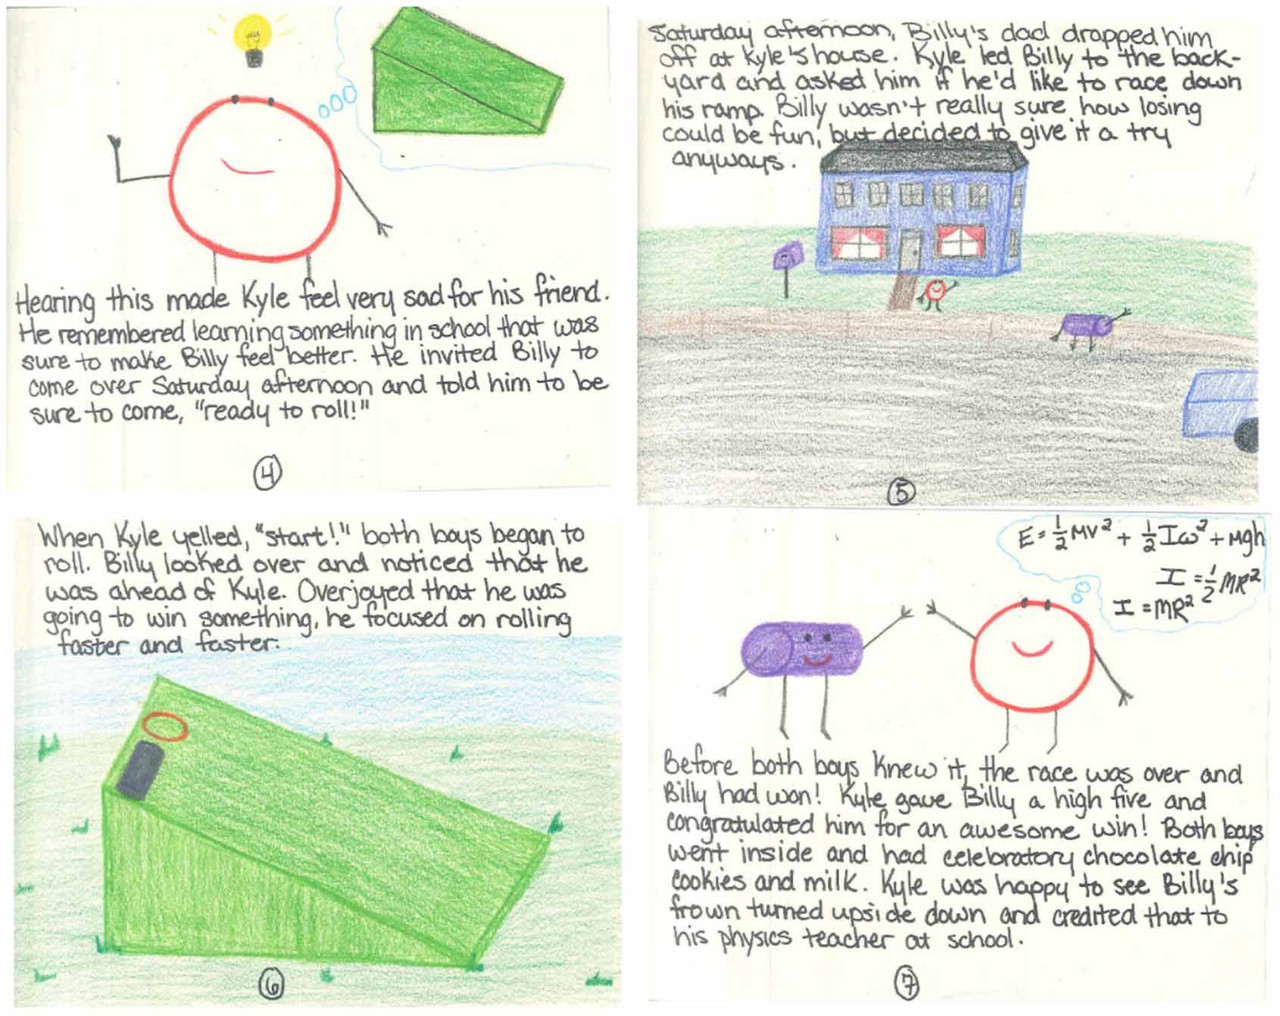 Hearing this made Kyle feel very sad for his friend.
He remembered learning something in school that was
sure to make Billy feel better. He invited Billy to
come over Saturday afternoon and told him to be
sure to come, "ready to roll!"
4
Saturday afternoon, Billy's dad dropped him
off at Kyle's house. Kyle led Billy to the back-
yard and asked him if he'd like to race down
his ramp. Billy wasn't really sure how losing
could be fun, but decided to give it a try
anyways.
5
When Kyle yelled, "start!" both boys began to
roll. Billy looked over and noticed that he
was ahead of Kyle. Overjoyed that he was
going to win something, he focused on rolling
faster and faster.
6
E = ½MV² + ½Iω² + Mgh
I = ½MR²
I = MR²
Before both boys knew it, the race was over and
Billy had won! Kyle gave Billy a high five and
congratulated him for an awesome win! Both boys
went inside and had celebratory chocolate chip
cookies and milk. Kyle was happy to see Billy's
frown turned upside down and credited that to
his physics teacher at school.
7